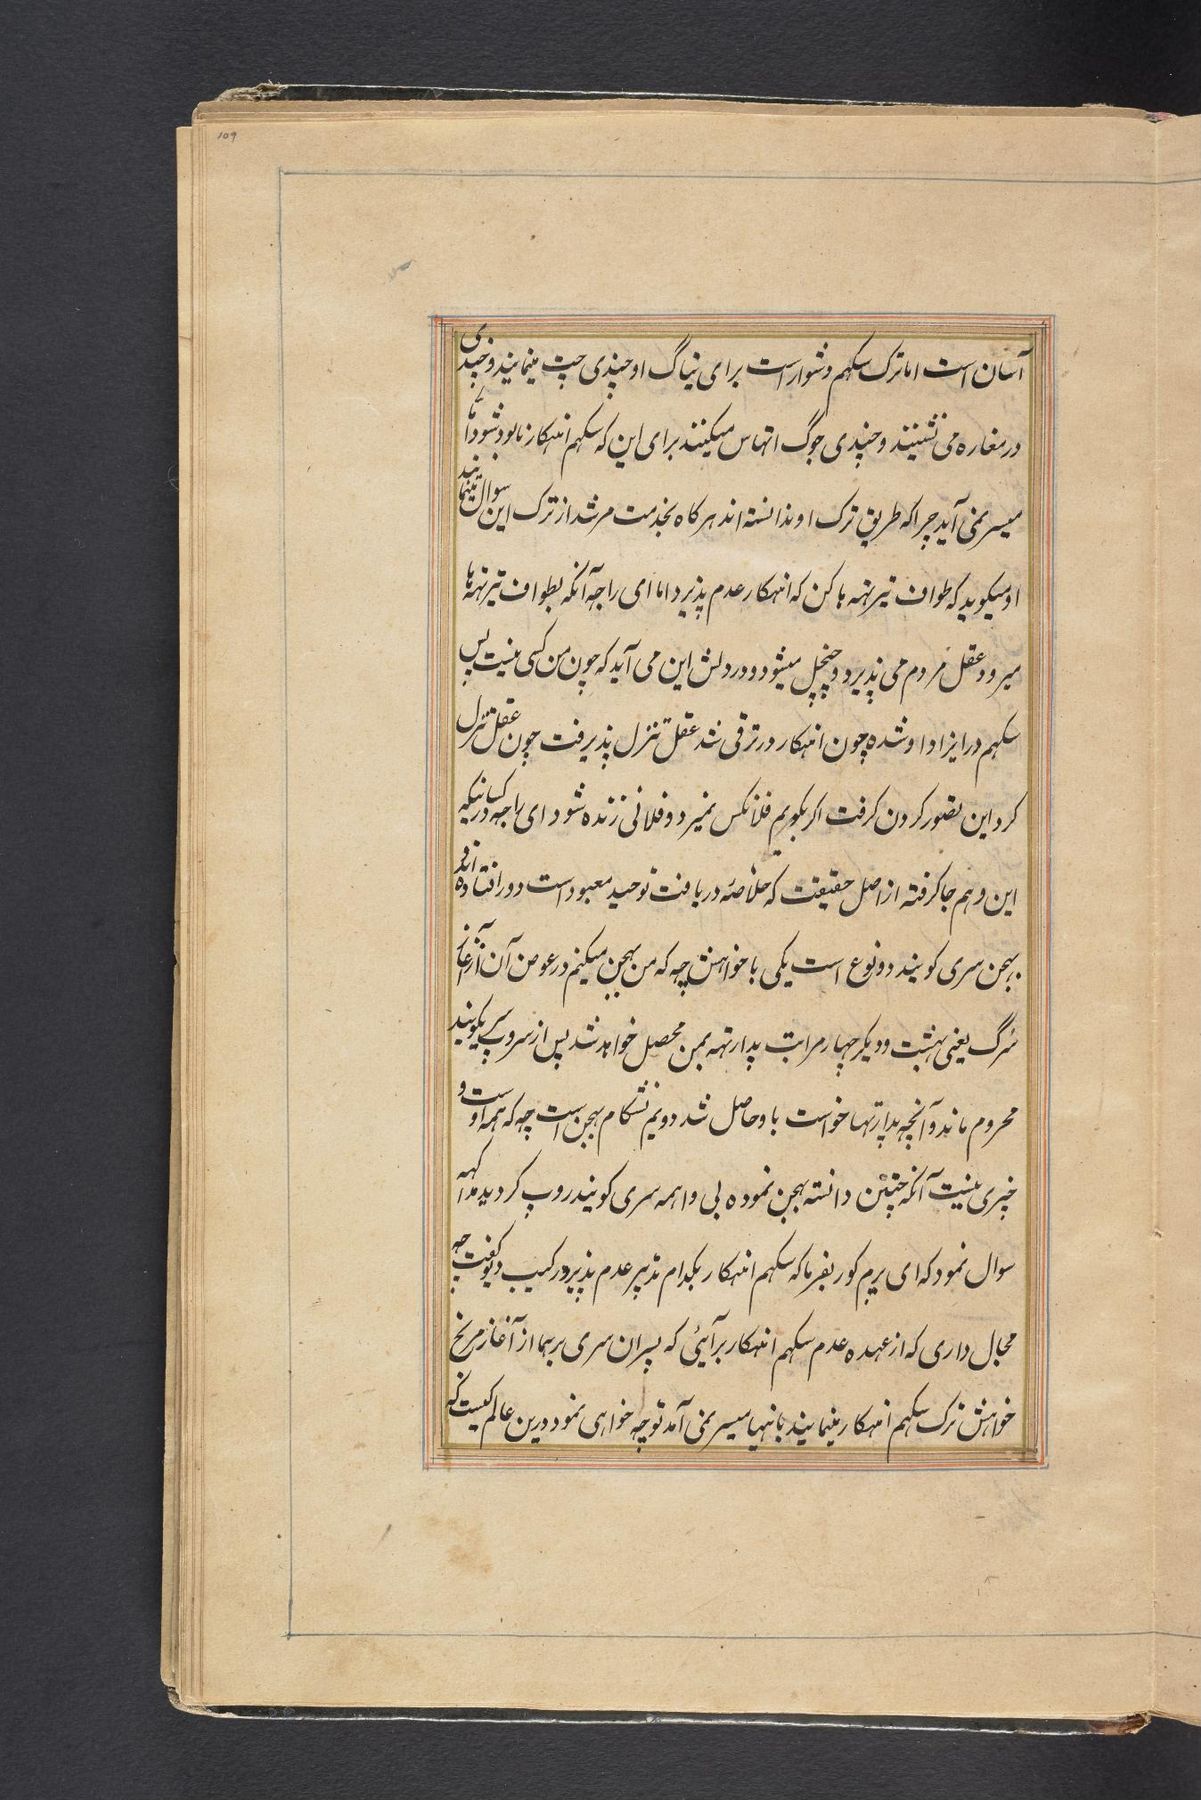 109
آسان است اما ترک سکهم دشوار است برای تیاگ او چندی جپ مینمایند و چندی
در مغاره می نشینند و چندی جوگ ابهیاس میکنند برای این که سکهم انهکار نابود شود تا
میسر نمی آید چرا که طریق ترک او ندانسته اند هرگاه بخدمت مرشد از ترک این سوال مینمایند
او میکوید که طواف تیرتهه ها کن که انهکار عدم پذیرد اما ای راجه آنکه بطواف تیرتهه ها
میرود عقل مردم می پذیرد و چنچل میشود و در دلش این می آید که چون من کسی نیست پس
سکهم در ایزاد او شده چون انهکار در ترقی شد عقل تنزل پذیرفت چون عقل تنزل
کرد این تصور کردن کرفت اکر بکویم فلانکس نمیرد و فلانی زنده شود ای راجه کسانیکه در
این وهم جا کرفته از اصل حقیقت که خلاصه دریافت توحید معبود است دور افتاده اند و
بهجن سری کوبند دو نوع است یکی با خواهش چه که من بهجن میکنم در عوض آن
سرگ یعنی بهشت و دیکر چهار مراتب پدارتهه بمن محصل خواهد شد پس از سروپ
محروم ماند و آنچه پدارتها خواست باو حاصل شد دویم نشکام بهجن است چه که همه اوست و
چیزی نیست آنکه چنین دانسته بهجن نموده بی واهمه سری کوبند روپ کردید
سوال نمود که ای برم کور بفرما که سکهم انهکار بکدام تدبیر عدم پذیرد رکهیب دیو کفت چه
مجال داری که از عهده عدم سکهم انهکار برآیئی که پسران سری برهما از آغاز
خواهش ترک سکهم انهکار مینمایند بانها میسر نمی آمد تو چه خواهی نمود درین عالم کیست که